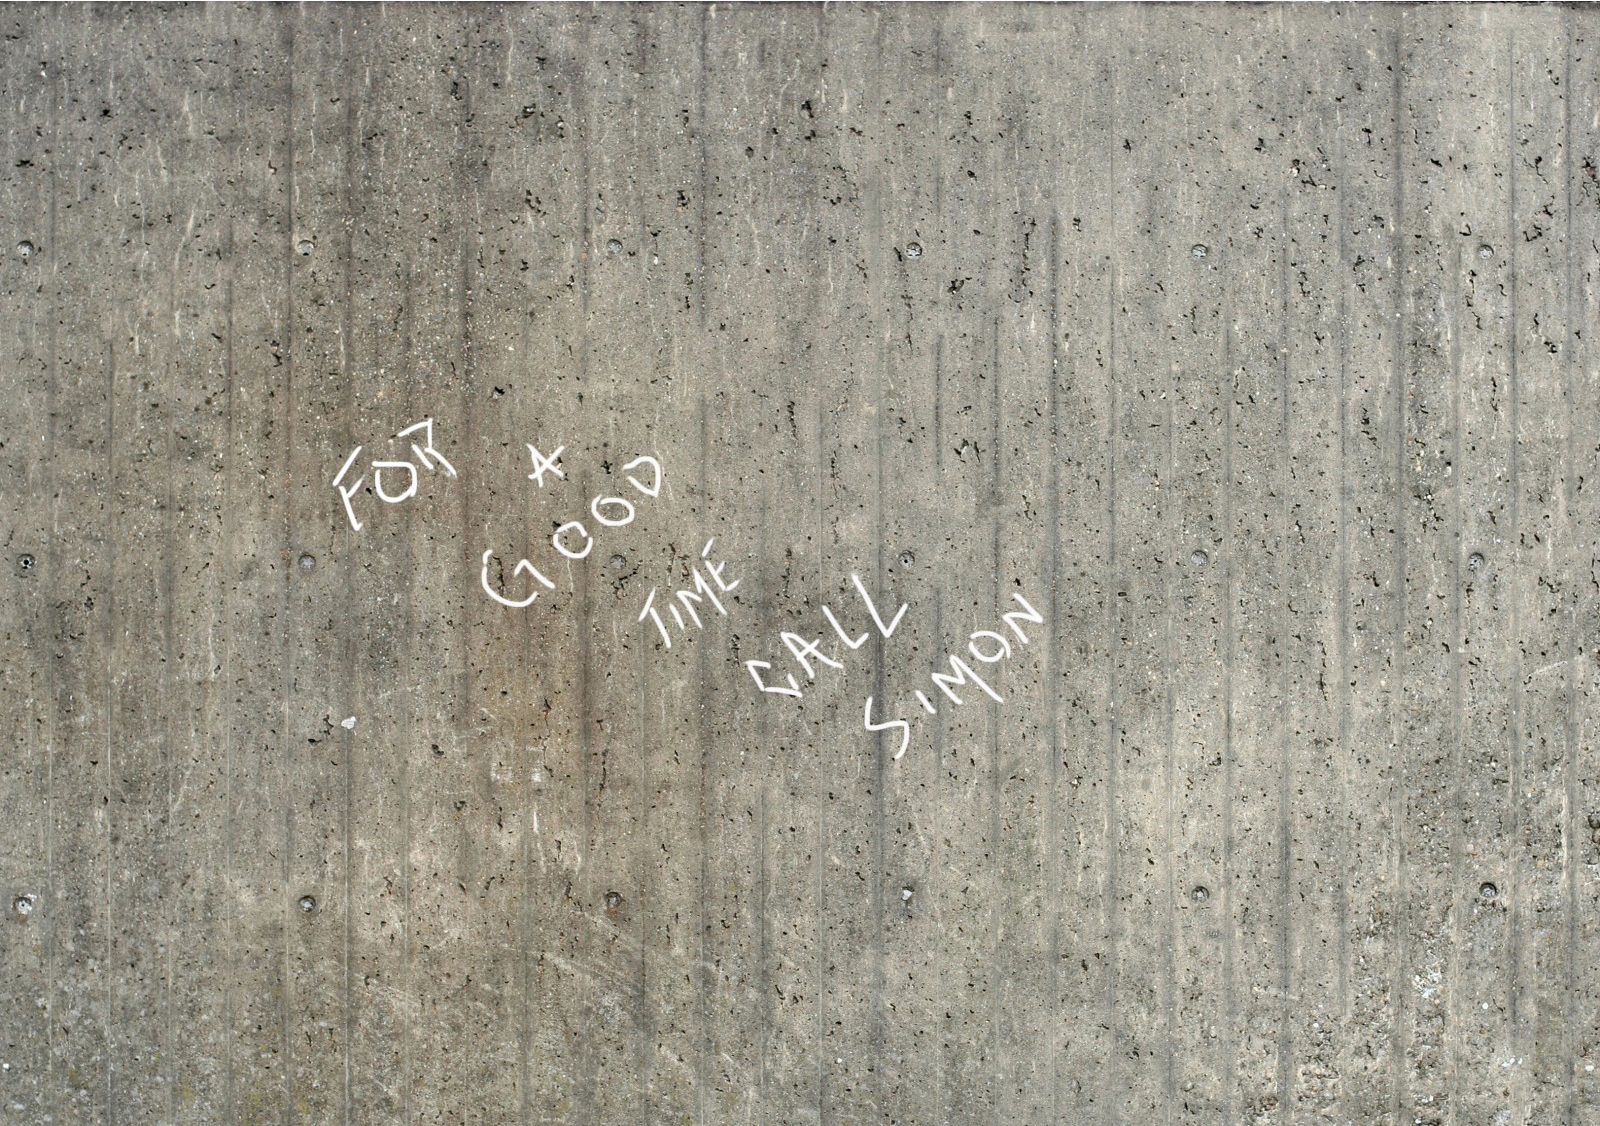 FOR A
GOOD
TIME
CALL
SIMON